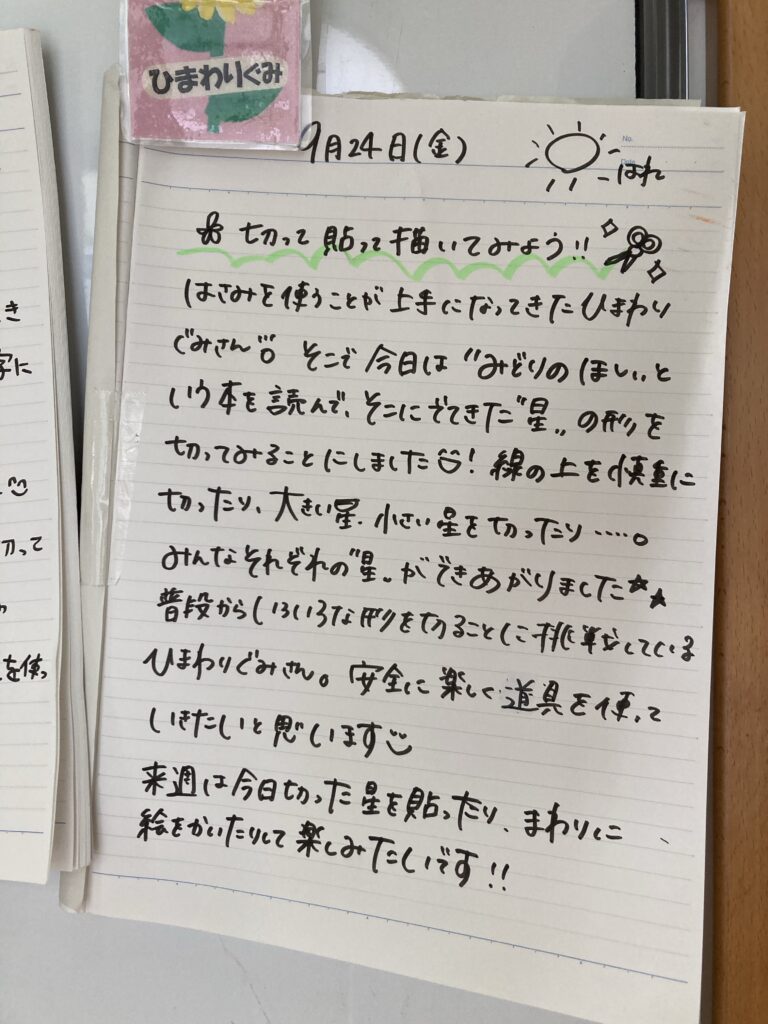 ひまわりぐみ
9月24日(金)
No.
Date
はれ
切って貼って描いてみよう!!
はさみを使うことが上手になってきたひまわり
ぐみさん。そこで今日は〝みどりのほし〟と
いう本を読んで、そこにでてきた〝星〟の形を
切ってみることにしました!線の上を慎重に
切ったり、大きい星、小さい星を切ったり……。
みんなそれぞれの〝星〟ができあがりました★★
普段からいろいろな形を切ることに挑戦している
ひまわりぐみさん。安全に楽しく道具を使って
いきたいと思います
来週は今日切った星を貼ったり、まわりに
絵をかいたりして楽しみたいです!!
き
字に
切って
を使っ